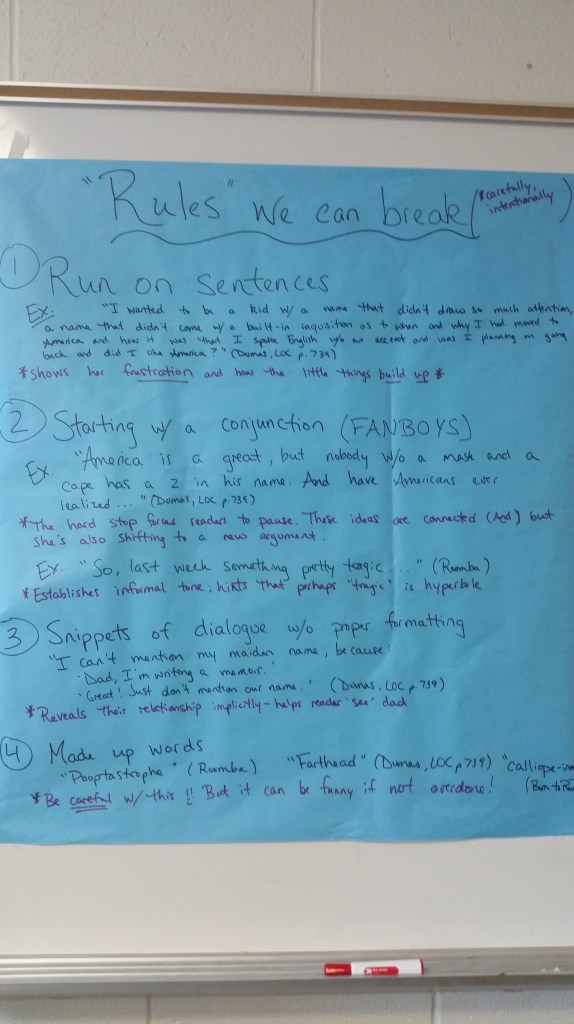 "Rules" we can break (*carefully, intentionally)
① Run on sentences
Ex: "I wanted to be a kid w/ a name that didn't draw so much attention,
a name that didn't come w/ a built-in inquistion as to when and why I had moved to
America and how it was that I spoke English w/o an accent and was I planning on going
back and did I like America?" (Dumas, LOC p. 739)
*shows her frustration and how the little things build up*
② Starting w/ a conjunction (FANBOYS)
Ex. "America is a great, but nobody w/o a mask and a
cape has a z in his name. And have Americans ever
realized..." (Dumas, LOC p. 739)
*The hard stop forces readers to pause. These ideas are connected (And) but
she's also shifting to a new argument.
Ex. "So, last week something pretty tragic..." (Roomba)
*Establishes informal tone; hints that perhaps "tragic" is hyperbole
③ Snippets of dialogue w/o proper formatting
"I can't mention my maiden name, because:
'Dad, I'm writing a memoir.'
'Great! Just don't mention our name.'" (Dumas, LOC p. 739)
*Reveals their relationship implicitly - helps reader "see" dad
④ Made up words
"Pooptastrophe" (Roomba) "Farthead" (Dumas, LOC p 739) "calliope-
(Born to
*Be careful w/ this!! But it can be funny if not overdone!